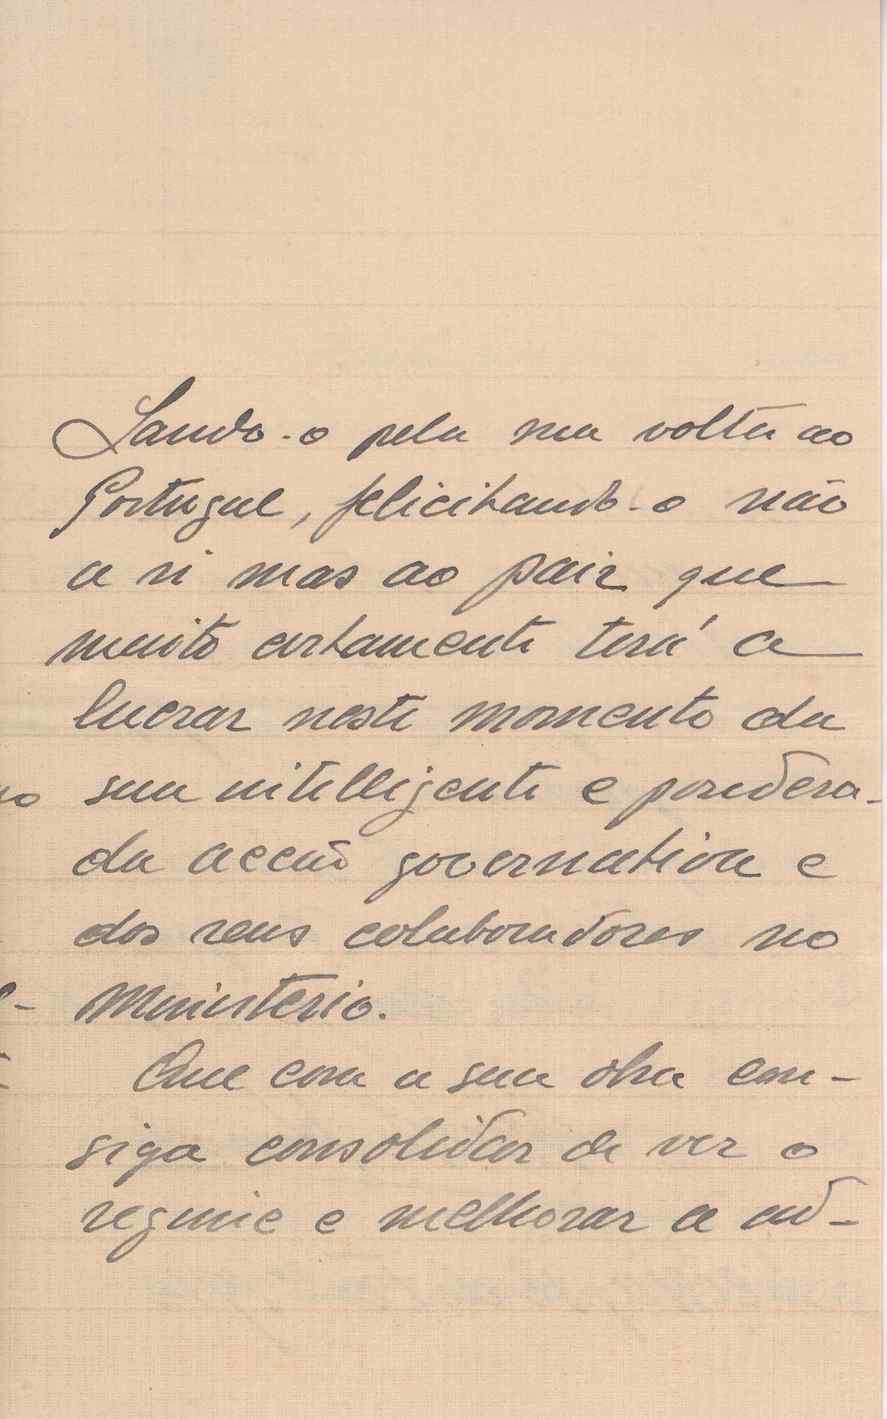 Saudo-o pela sua volta ao
Portugal, felicitando-o não
a si mas ao paiz que
muito certamente terá a
lucrar neste momento da
sua intelligente e pondera-
da acção governativa e
dos seus colaboradores no
Ministerio.
Que com a sua obra con-
siga consolidar de vez o
regime e melhorar a ad-